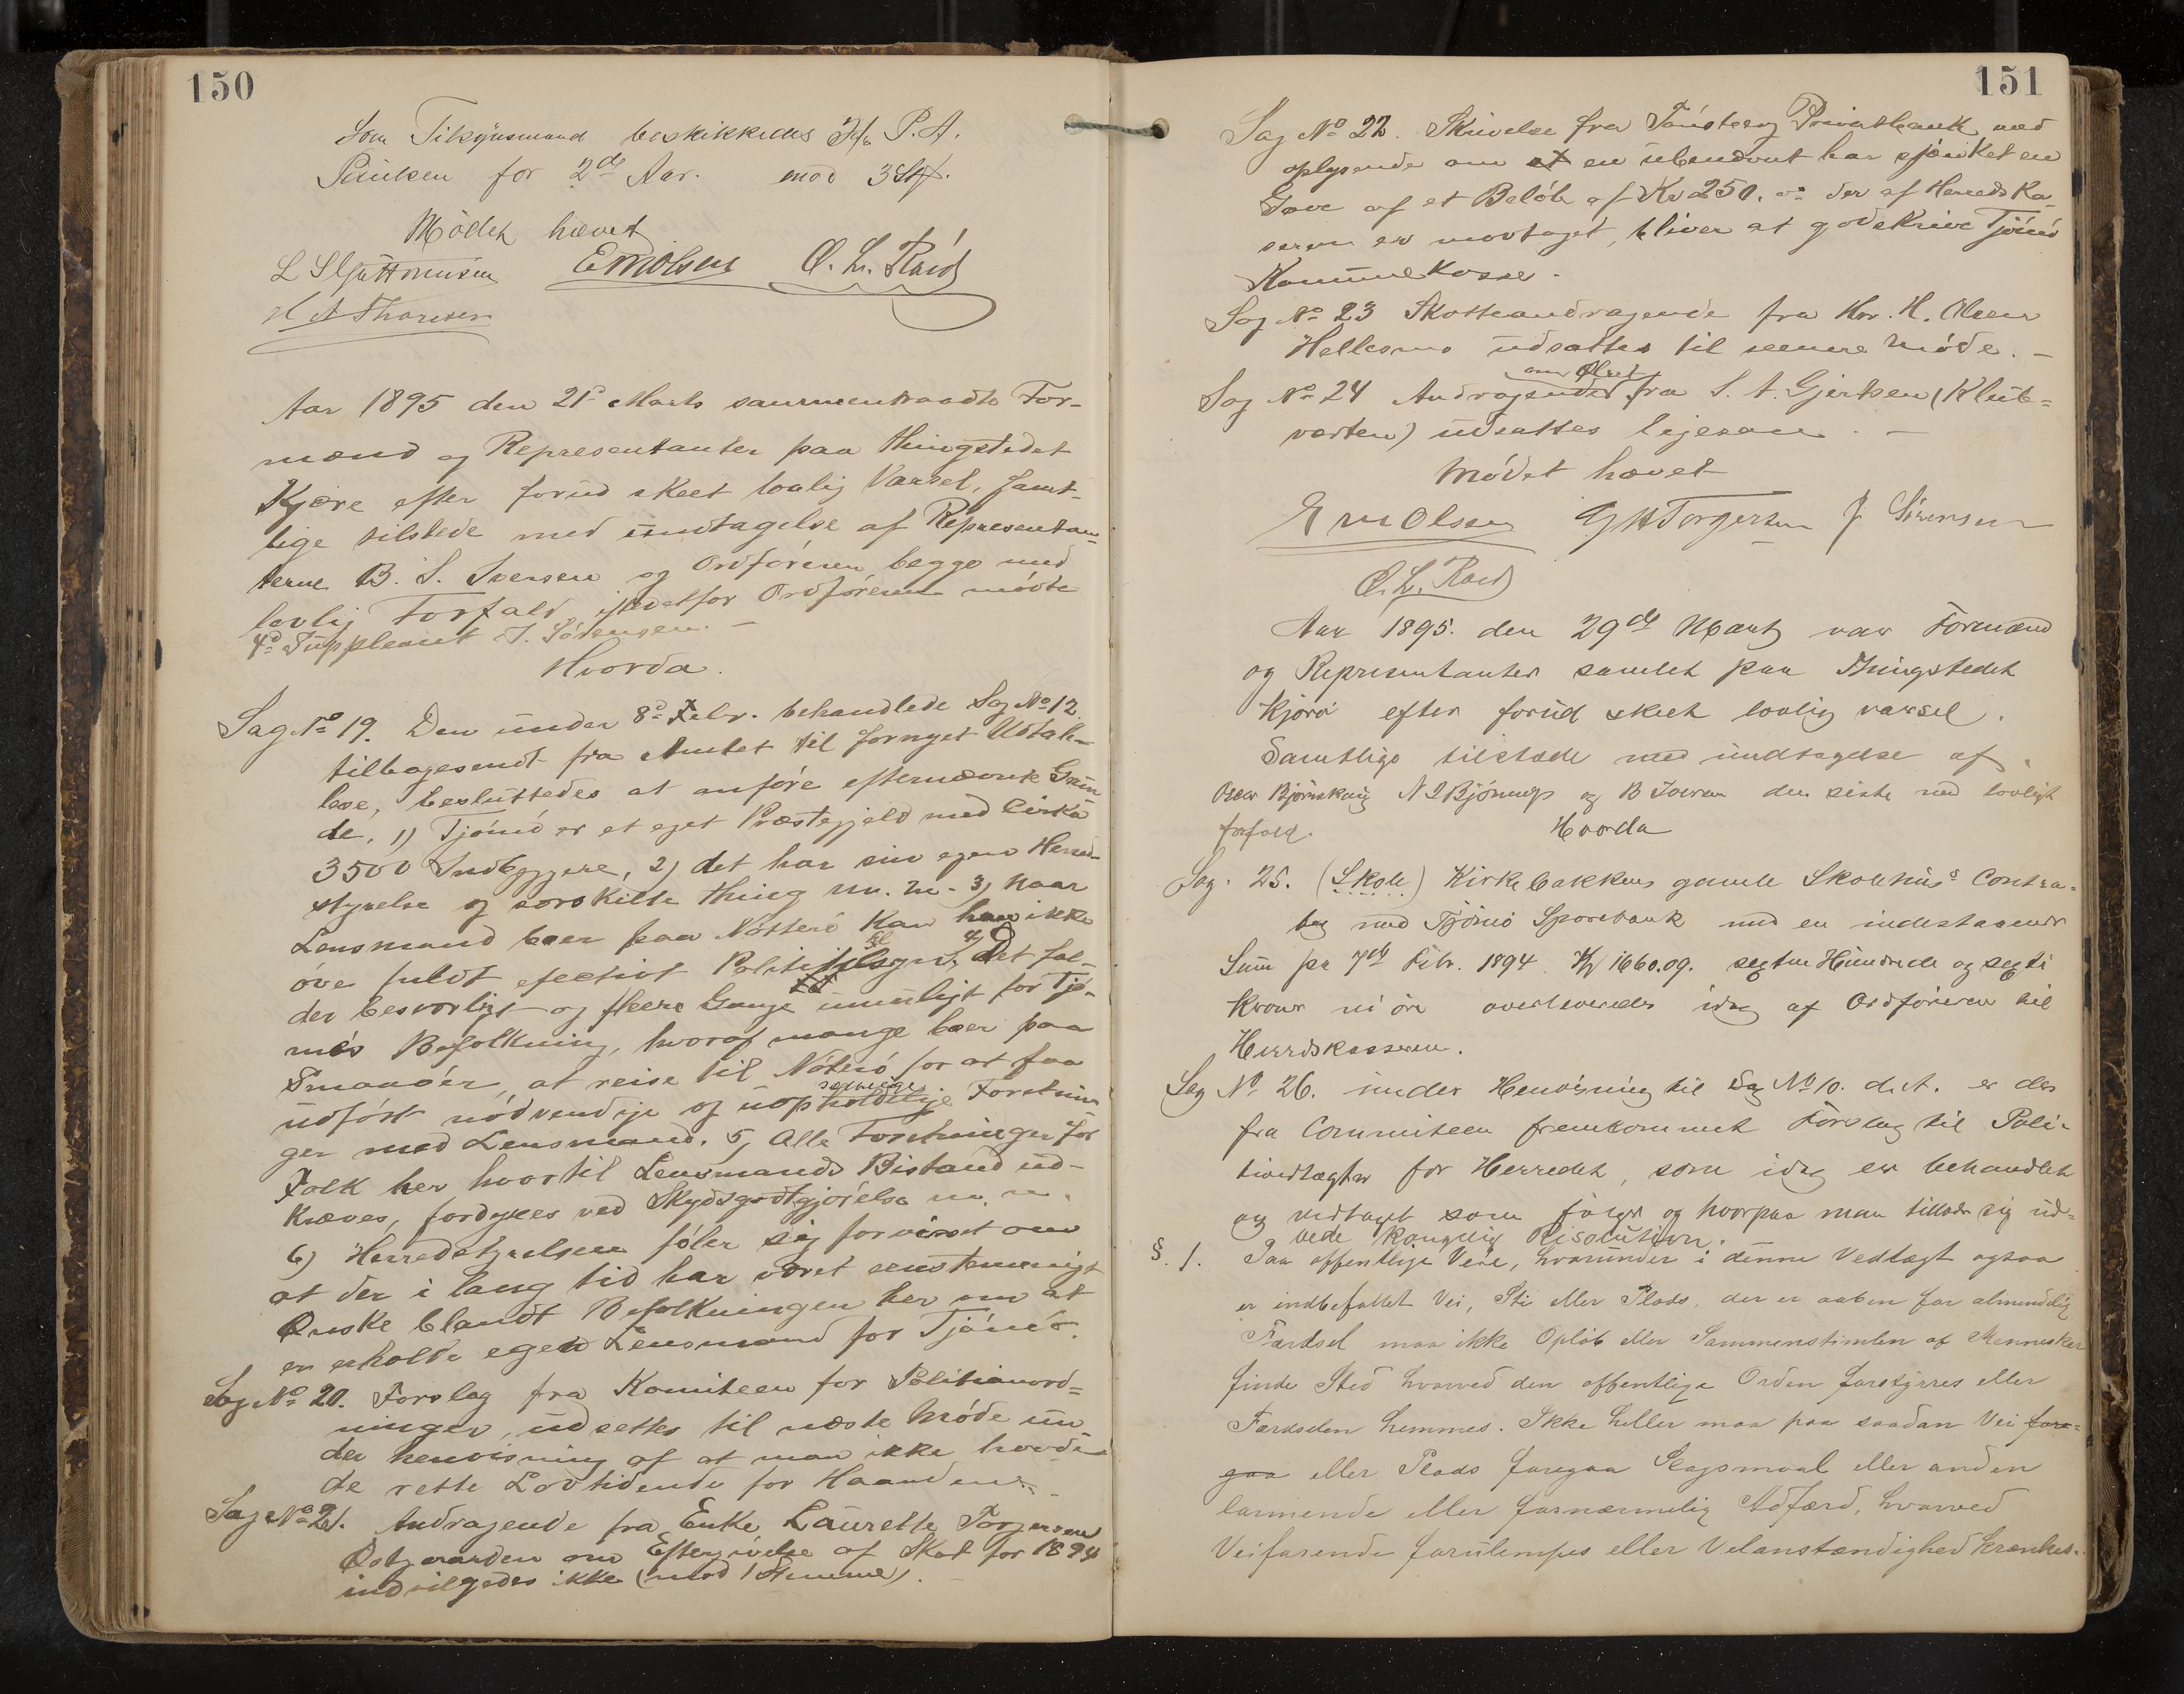 150
Som Tilsynsmand beskikkedes Hr. P. A.
Paulsen for 2de Aar. mod 3 St.
Mødet hævet
E M Olsen O. L. Røed
H A Thoresen
Aar 1895 den 21de Marts sammentraadte For-
mænd og Representanter paa Thingstedet
Kjære efter forud skeet lovlig Varsel, Samt-
lige tilstede med undtagelse af Representan-
terne B. S. Iversen og Ordføreren begge med
lovlig Forfald, istedetfor Ordføreren mødte
4de Suppleant J. Sørensen. —
Hvorda.
Sag No 19. Den under 8de Febr. behandlede Sag No 12
tilbagesendt fra Amtet til fornyet Udtal-
lese, besluttedes at anføre efternævnte Grun
de, 1) Tjømø er et eget Præstegjeld med Cirka
3500 Indbyggere, 2) det har sin egen Herred-
styrelse og særskilte thing m. m. 3) Naar
Lensmand boer paa Nøtterø kan han ikke
øve fuldt efectivt Politi tilsyn, 4) Det fal-
der besværligt og flere Gange umuligt for Tjø-
møs Befolkning, hvoraf mange boer paa
Smaaøer, at reise til Nøtterø for at faa
udført nødvendige og uopsættelige Foretnin
ger med Lensmand. 5) Alle Foretninger for
Folk her hvortil Lensmands Bistand ud-
kræves, fordyres ved Skydsgodtgjørelse m. m.
6) Herredstyrelsen føler sig forvisset om
at der i lang tid har været eenstemmigt
Ønske blandt Befolkningen her om at
en erholde egen Lensmand for Tjømø.
Sag No 20. Forslag fra Komiteen for Politianord=
ninger, udsettes til næste Møde un
der henvisning af at man ikke havde
de rette Lovtidende for Haanden. —
Sag No 21. Andragende fra Enke Laurette Torgersen
Østgaarden om Eftergivelse af Skat for 1894
indvilgedes ikke (mod 1 Stemme). —
151
Sag No 22. Skrivelse fra Tønsberg Privatbank med
oplysende om at en ubenævnt har skjænket en
Gave af et Beløb af Kr 250. der af Herredska
seren er modtaget, bliver at godskrive Tjømø
Kommunekasse.
Sag No 23 Skatteandragende fra Hr. H. Olsen
Hellesmo udsættes til senere Møde. —
om Ølret
Sag No 24 Andragendet fra S. A. Gjertsen (Klub=
værten) udsættes ligesaa. —
Mødet hævet
E M Olsen G H Torgersen J Sørensen
O. L. Røed
Aar 1895. den 29de Marts var Formænd
og Representanter samlet paa Thingstedet
Kjære efter forud skeet lovlig varsel.
Samtlige tilstede med undtagelse af
Oscar Bjørnskaug og B Iversen den siste med lovligt
forfald. Hvorda
Sag. 25. (Skole) Kirkebakkens gamle Skolehus's Contra-
bog med Tjømø Sparebank med en indestaaende
Sum pr 7de Febr. 1894 Kr 1660.09. sexten Hundrede og sexti
kroner ni øre overleveredes idag af Ordføreren til
Herredskasseren.
Sag No 26. under Henvisning til Sag No 10. d. A. er der
fra Commiteen fremkommet Forslag til Poli-
tivedtægter for Herredet, som idag er behandlet
og vedtaget som følger og hvorpaa man tillader sig ud-
bede kongelig Resolution.
§. 1. Paa offentlige Veie, hvorunder i denne Vedtægt ogsaa
er indbefattet Vei, Sti eller Plads, der er aaben for almindelig
Færdsel maa ikke Opløb eller Sammenstimlen af Mennesker
finde Sted hvorved den offentlige Orden forstyrres eller
Færdselen hemmes. Ikke heller maa paa saadan Vei fore=
gaa eller Plads foregaa Slagsmaal eller anden
larmende eller fornærmelig Adfærd, hvorved
Veifarende forulempes eller Velanstændighed krænkes.